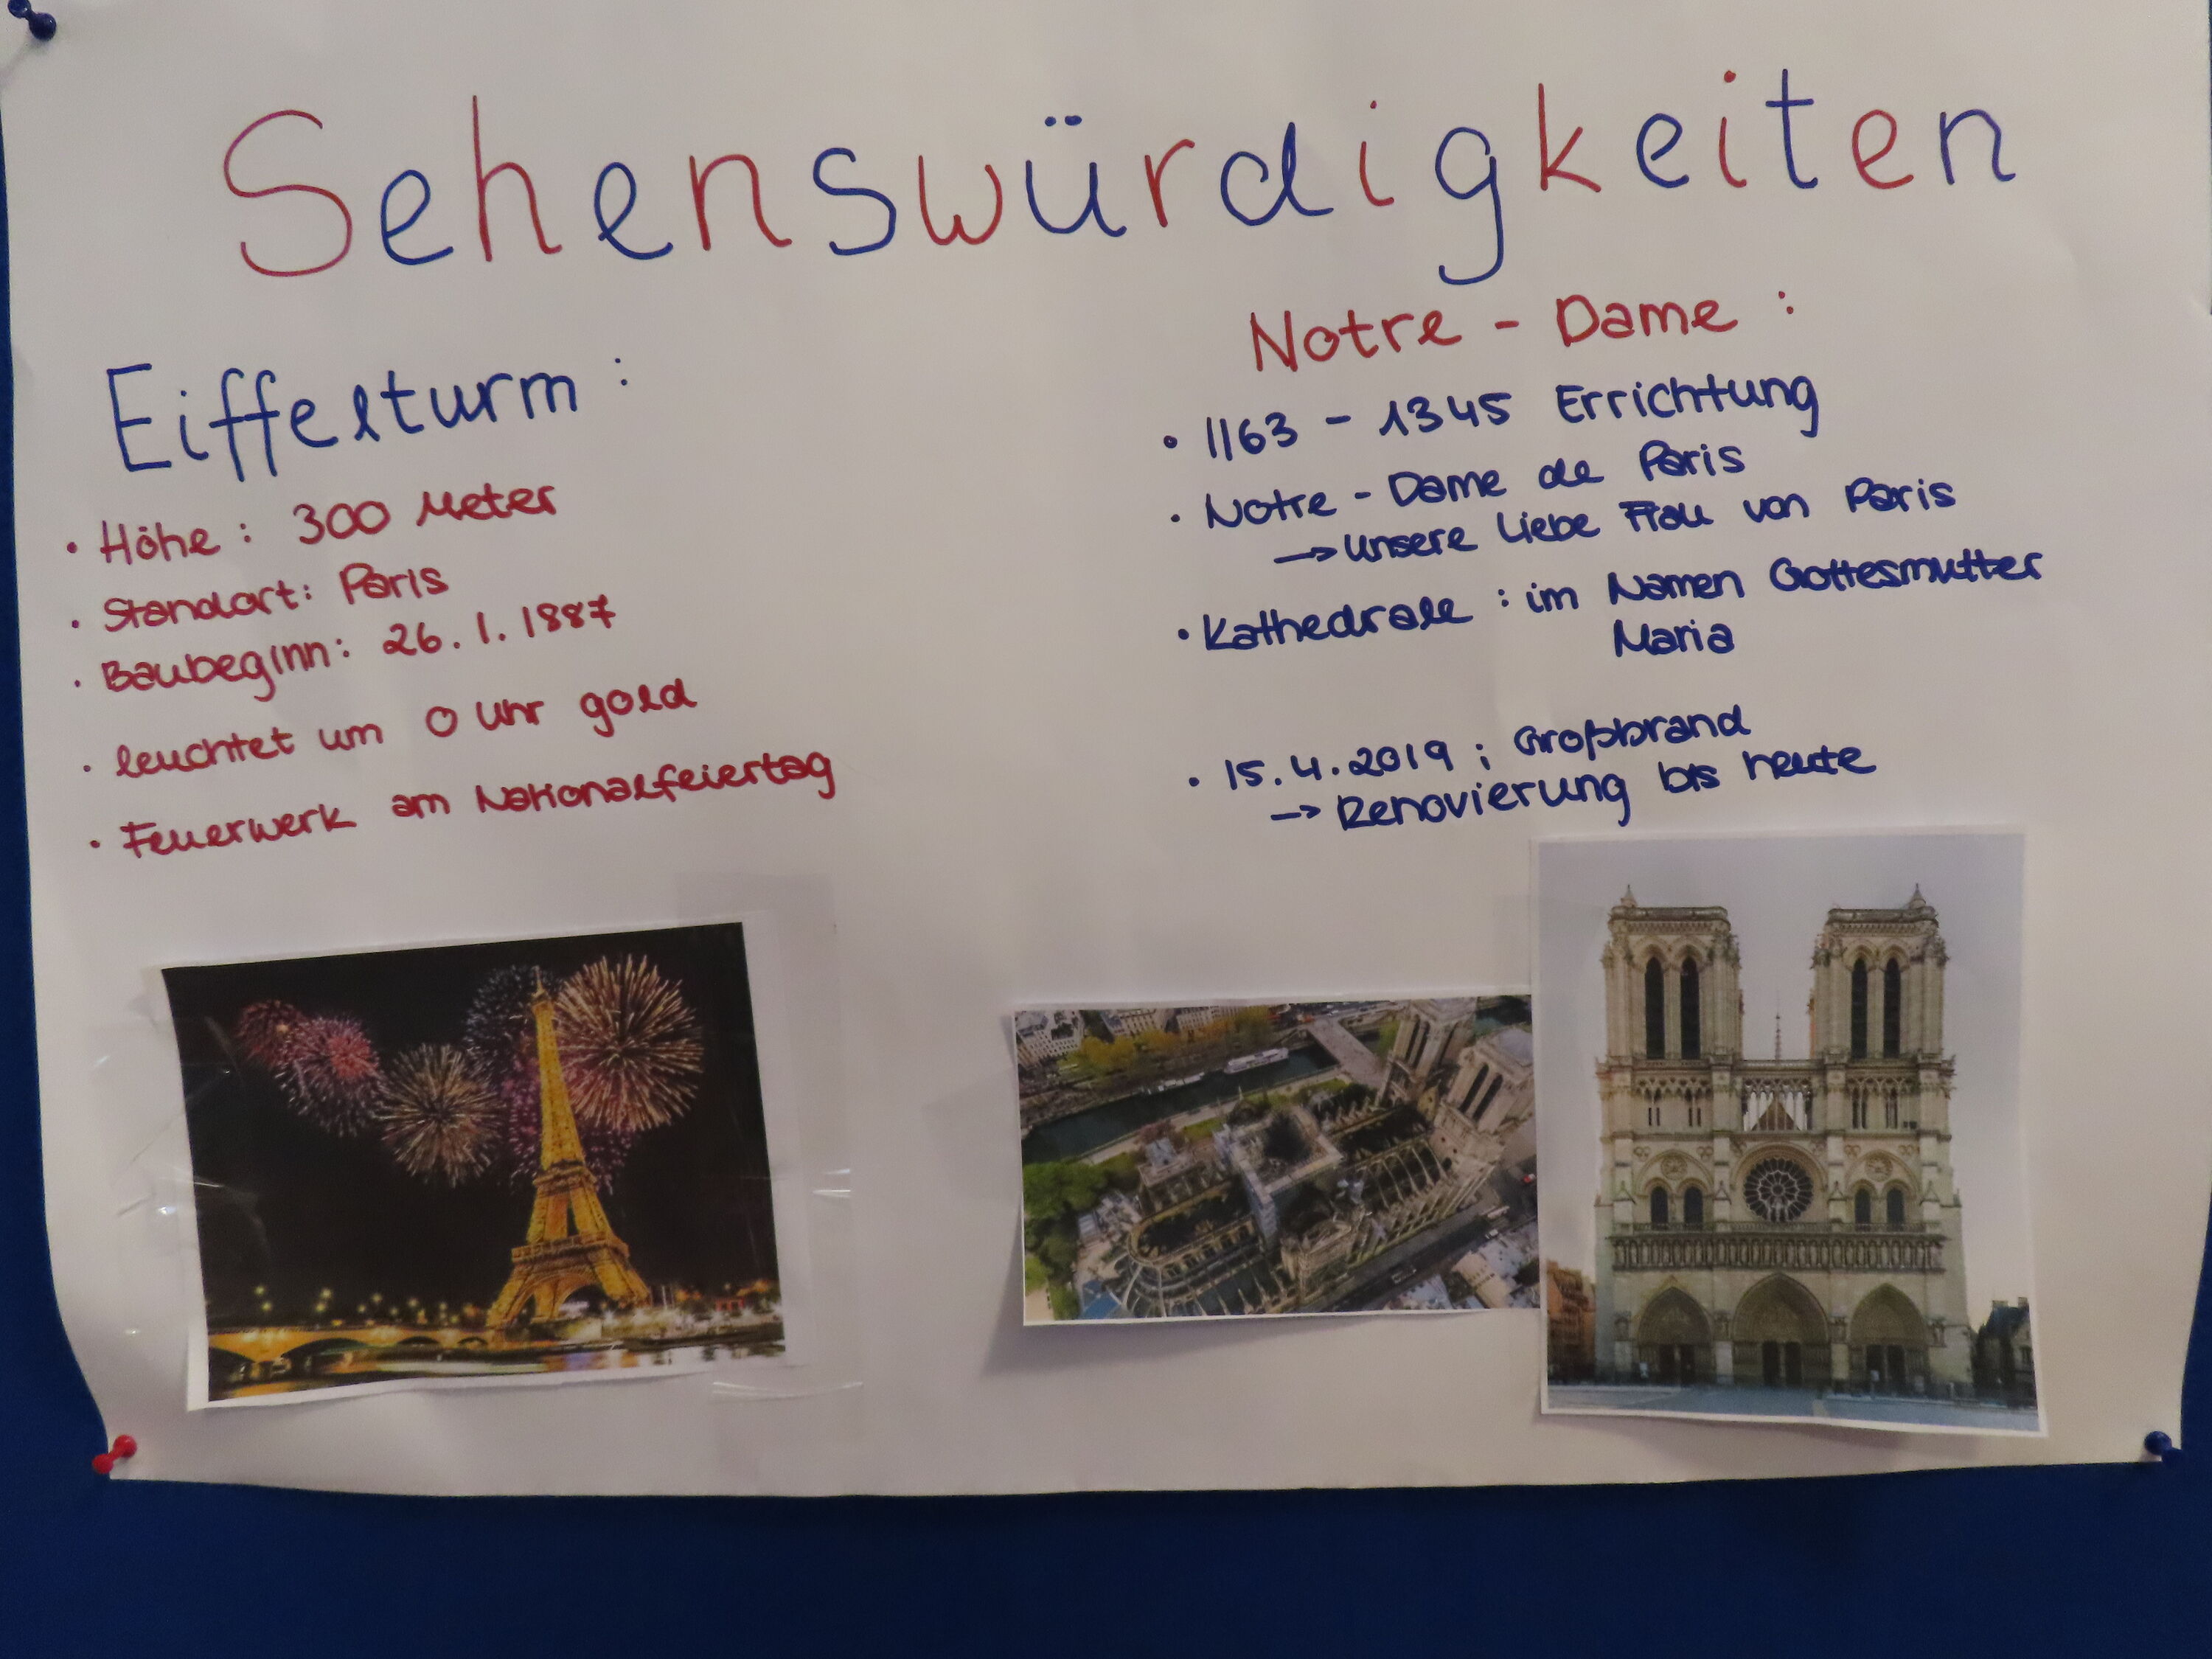 Sehenswürdigkeiten
Eiffelturm :
• Höhe : 300 Meter
• Standort : Paris
• Baubeginn : 26.1.1887
• leuchtet um 0 Uhr gold
• Feuerwerk am Nationalfeiertag
Notre - Dame :
• 1163 - 1345 Errichtung
• Notre - Dame de Paris
→ unsere Liebe Frau von Paris
• Kathedrale : im Namen Gottesmutter
Maria
• 15.4.2019 ; Großbrand
→ Renovierung bis heute